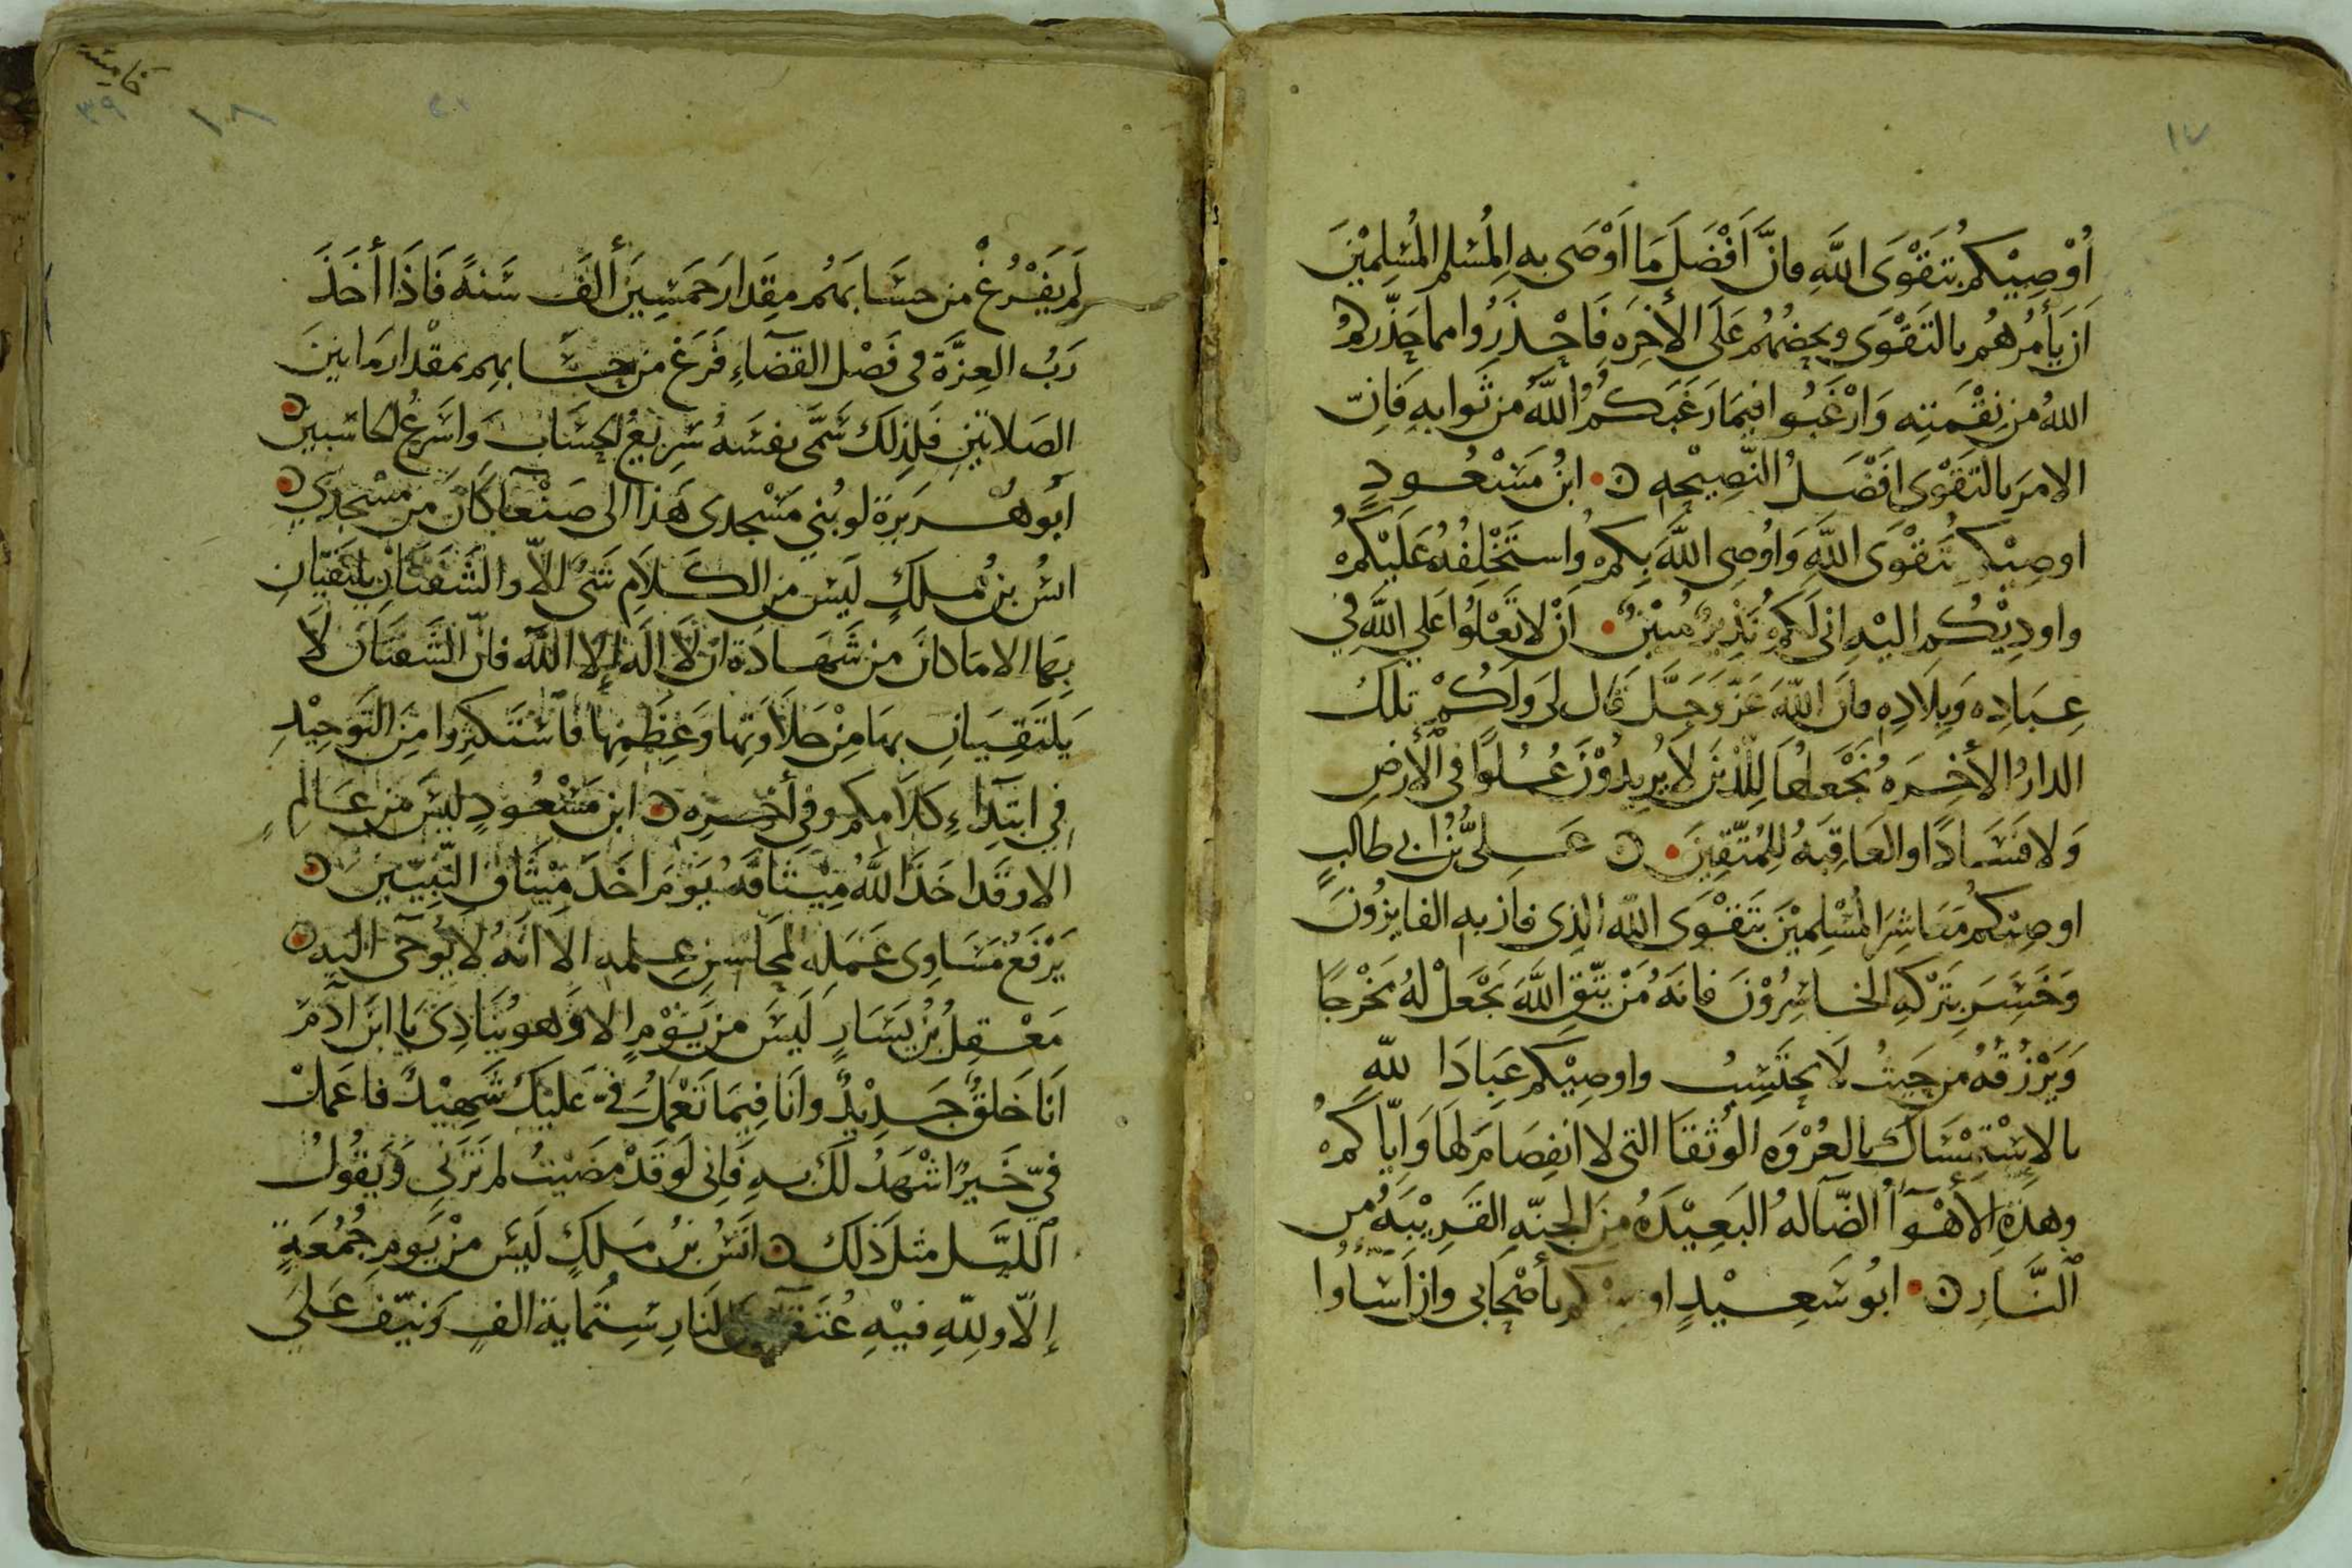 ١٧
أُوْصِيْكُم بتَقْوَى اللَّهِ فانَّ اَفْضَلَ مَا اَوْصَى بهِ المُسْلم المُسْلِمِيْنَ
اَن يَأمُرهُم بالتَقْوَى ويحضُهُم عَلَى الأخِرَه فَاحْذَرُوا مما حَذَّركمُ
اللهُ من نِقْمَتِه وَارْغَبُوا فيمَا رَغَبَكُمُ اللَّهُ من ثَوابهِ فَانّ
الامرَ بالتَقْوَى افَضَلُ النّصِيْحِه ابنُ مَسْعُودٍ
اوصِيْكم بتَقْوَى اللَّهِ وَاوُصِى اللَّهَ بِكمُ واستَخْلِفُهُ عَلَيْكُمُ
واودِيْكُم اليْهِ انى لَكمُ نَذِيرٌ مُبِيْنٌ اَنْ لا تَعْلوُا عَلى اللَّهِ فِي
عِبَادِه وَبِلَادِهِ فانَ اللَّهَ عَزَّ وَجَلَّ قَال لى وَلَكُمْ تلكَ
الدارُ الأخِرَه نَجْعَلُهَا لِلّذينَ لَا يُريدُوْنَ عُلوًا فى الأرضِ
وَلا فَسَادًا والعَاقِبَهُ لِلمُتّقِينَ عَلىُّ بْنُ ابي طالبٍ
اوصِيْكم مَعَاشِرَ المُسْلِمِيْنَ بتَقْوَى اللَّهِ الذِى فازَ بهِ الفايزُونَ
وَخَسِرَ بتَرْكهِ الخاسِرُوْنَ فانهُ مَنْ يَتّقِ اللَّهَ يَجْعَلْ لهُ مَخْرجًا
وَيَرْزقْهُ من حَيثُ لَا يحتَسِبُ واوصِيْكم عِبَادَ اللَّهِ
بالإسْتِمْسَاك بالعُرْوَه الوُثقَا التى لا انفِصَامَ لهَا وَايّاكمُ
وهذِهِ الأهْوَآ الضّالهُ البَعِيْدَهُ مِنَ الجنّهِ القَرِيْبَهُ من
النَّارِ ابوُ سَعِيْدٍ بأصْحَابى وان اَسَاوُا
خامسة
٣٩ ١٨
لَم يَفْرُغْ من حسَابهم مِقدارَ خمَسِينَ ألفَ سَنهً فَاذَا أخَذَ
رَبُ العِزَّة فى فَصْل القضَاءِ فَرَغ من حسَابهم بمقْدار مَا بَينَ
الصَلاتينِ فَلِذلكَ سَمَّى نفسَهُ سَرِيْعُ الحسَابِ وَاسَرعُ الحاسبينَ
أبو هُريرَة لو بُني مَسْجدى هَذا الى صَنْعَا كانَ من مسْجدِي
انسُ بنُ ملكٍ ليَسَ من الكَلامِ شَىٌ الاّ والشَفتَانِ يلتَقيَانِ
بهَا الا مَا كانَ من شَهَادَة ان لَا الَه إلا اللَّه فانّ الشَفتَانَ لَا
يَلتَقِيَانِ بهَا مِنْ حَلَاوتهَا وَعِظَمِهَا فاسْتَكثِروا مِنَ التَوحِيْدِ
فِي ابتدَاءِ كَلَامِكم وفِي أخِرِه ابن مَسْعُودٍ ليسَ من عَالمٍ
الا وقَد اخَذَ اللَّهُ مِيْثاقَهُ يَوْمَ اخَذَ مِيْثَاقَ النّبِيينَ
يَرْفَعُ مَسَاوِى عَمَلِهِ لمحَاسِنِ عِلمه الا انَهُ لا يُوحَى اليهِ
مَعْقِلُ بْنُ يَسَارٍ لَيسَ من يَوْمٍ إلا وَهو يُنَادِى يَا ابنَ آدَمَ
اَنَا خَلقٌ جَدِيْدٌ وانَا فِيمَا تَعْمَلُ فِيّ عَليْكَ شَهِيْدٌ فاعَملْ
فيّ خَيرًا اشْهَدُ لَكَ بهِ فَانِى لَو قَدْ مَضَيتُ لم تَرَنِي وَيقُولُ
الليَل مثلَ ذَلكَ انَسُ بنُ مَلكٍ لَيسَ من يَوم جُمُعَةٍ
إلّا ولِلَّهِ فيْهِ عُتَقَآ النَار سِتُمايةَ الفٍ وَنيّفَ عَلىَ